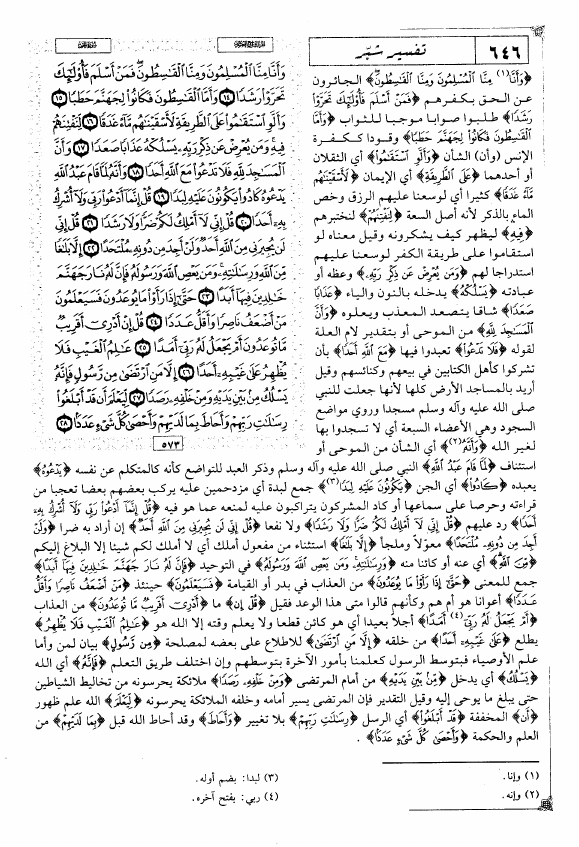 ٦٤٦
تفسير شبّر
﴿وَأَنَّا(١) مِنَّا الْمُسْلِمُونَ وَمِنَّا الْقَاسِطُونَ﴾ الجائرون
عن الحق بكفرهم ﴿فَمَنْ أَسْلَمَ فَأُوْلَئِكَ تَحَرَّوْا
رَشَدًا﴾ طلبوا صوابا موجبا للثواب ﴿وَأَمَّا
الْقَاسِطُونَ فَكَانُوا لِجَهَنَّمَ حَطَبًا﴾ وقودا ككفرة
الإنس (وأن) الشأن ﴿وَأَلَّوِ اسْتَقَامُوا﴾ أي الثقلان
أو أحدهما ﴿عَلَى الطَّرِيقَةِ﴾ أي الإيمان ﴿لَأَسْقَيْنَاهُم
مَّاءً غَدَقًا﴾ كثيرا أي لوسعنا عليهم الرزق وخص
الماء بالذكر لأنه أصل السعة ﴿لِنَفْتِنَهُمْ﴾ لنختبرهم
﴿فِيهِ﴾ ليظهر كيف يشكرونه وقيل معناه لو
استقاموا على طريقة الكفر لوسعنا عليهم
استدراجا لهم ﴿وَمَن يُعْرِضْ عَن ذِكْرِ رَبِّهِ﴾ وعظه أو
عبادته ﴿يَسْلُكْهُ﴾ يدخله بالنون والياء ﴿عَذَابًا
صَعَدًا﴾ شاقا يتصعد المعذب ويعلوه ﴿وَأَنَّ
الْمَسَاجِدَ لِلَّهِ﴾ من الموحى أو بتقدير لام العلة
لقوله ﴿فَلَا تَدْعُوا﴾ تعبدوا فيها ﴿مَعَ اللَّهِ أَحَدًا﴾ بأن
تشركوا كأهل الكتابين في بيعهم وكنائسهم وقيل
أريد بالمساجد الأرض كلها لأنها جعلت للنبي
صلى الله عليه وآله وسلم مسجدا وروي مواضع
السجود وهي الأعضاء السبعة أي لا تسجدوا بها
لغير الله ﴿وَأَنَّهُ(٢)﴾ أي الشأن من الموحى أو
وَأَنَّا مِنَّا الْمُسْلِمُونَ وَمِنَّا الْقَاسِطُونَ فَمَنْ أَسْلَمَ فَأُوْلَئِكَ
تَحَرَّوْا رَشَدًا ١٤ وَأَمَّا الْقَاسِطُونَ فَكَانُوا لِجَهَنَّمَ حَطَبًا ١٥
وَأَلَّوِ اسْتَقَامُوا عَلَى الطَّرِيقَةِ لَأَسْقَيْنَاهُم مَّاءً غَدَقًا ١٦ لِنَفْتِنَهُمْ
فِيهِ وَمَن يُعْرِضْ عَن ذِكْرِ رَبِّهِ يَسْلُكْهُ عَذَابًا صَعَدًا ١٧ وَأَنَّ
الْمَسَاجِدَ لِلَّهِ فَلَا تَدْعُوا مَعَ اللَّهِ أَحَدًا ١٨ وَأَنَّهُ لَمَّا قَامَ عَبْدُ اللَّهِ
يَدْعُوهُ كَادُوا يَكُونُونَ عَلَيْهِ لِبَدًا ١٩ قُلْ إِنَّمَا أَدْعُوا رَبِّي وَلَا أُشْرِكُ
بِهِ أَحَدًا ٢٠ قُلْ إِنِّي لَا أَمْلِكُ لَكُمْ ضَرًّا وَلَا رَشَدًا ٢١ قُلْ إِنِّي
لَن يُجِيرَنِي مِنَ اللَّهِ أَحَدٌ وَلَنْ أَجِدَ مِن دُونِهِ مُلْتَحَدًا ٢٢ إِلَّا بَلَاغًا
مِّنَ اللَّهِ وَرِسَالَاتِهِ وَمَن يَعْصِ اللَّهَ وَرَسُولَهُ فَإِنَّ لَهُ نَارَ جَهَنَّمَ
خَالِدِينَ فِيهَا أَبَدًا ٢٣ حَتَّى إِذَا رَأَوْا مَا يُوعَدُونَ فَسَيَعْلَمُونَ
مَنْ أَضْعَفُ نَاصِرًا وَأَقَلُّ عَدَدًا ٢٤ قُلْ إِنْ أَدْرِي أَقَرِيبٌ
مَّا تُوعَدُونَ أَمْ يَجْعَلُ لَهُ رَبِّي أَمَدًا ٢٥ عَالِمُ الْغَيْبِ فَلَا
يُظْهِرُ عَلَى غَيْبِهِ أَحَدًا ٢٦ إِلَّا مَنِ ارْتَضَى مِن رَّسُولٍ فَإِنَّهُ
يَسْلُكُ مِن بَيْنِ يَدَيْهِ وَمِنْ خَلْفِهِ رَصَدًا ٢٧ لِّيَعْلَمَ أَن قَدْ أَبْلَغُوا
رِسَالَاتِ رَبِّهِمْ وَأَحَاطَ بِمَا لَدَيْهِمْ وَأَحْصَى كُلَّ شَيْءٍ عَدَدًا ٢٨
٥٧٣
استئناف ﴿لَمَّا قَامَ عَبْدُ اللَّهِ﴾ النبي صلى الله عليه وآله وسلم وذكر العبد للتواضع كأنه كالمتكلم عن نفسه ﴿يَدْعُوهُ﴾
يعبده ﴿كَادُوا﴾ أي الجن ﴿يَكُونُونَ عَلَيْهِ لِبَدًا(٣)﴾ جمع لبدة أي مزدحمين عليه يركب بعضهم بعضا تعجبا من
قراءته وحرصا على سماعها أو كاد المشركون يتراكبون عليه لمنعه عما هو فيه ﴿قُلْ إِنَّمَا أَدْعُوا رَبِّي وَلَا أُشْرِكُ بِهِ
أَحَدًا﴾ رد عليهم ﴿قُلْ إِنِّي لَا أَمْلِكُ لَكُمْ ضَرًّا وَلَا رَشَدًا﴾ ولا نفعا ﴿قُلْ إِنِّي لَن يُجِيرَنِي مِنَ اللَّهِ أَحَدٌ﴾ إن أراد به ضرا ﴿وَلَنْ
أَجِدَ مِن دُونِهِ مُلْتَحَدًا﴾ معوّلا وملجأ ﴿إِلَّا بَلَاغًا﴾ استثناء من مفعول أملك أي لا أملك لكم شيئا إلا البلاغ إليكم
﴿مِّنَ اللَّهِ﴾ أي عنه أو كائنا منه ﴿وَرِسَالَاتِهِ وَمَن يَعْصِ اللَّهَ وَرَسُولَهُ﴾ في التوحيد ﴿فَإِنَّ لَهُ نَارَ جَهَنَّمَ خَالِدِينَ فِيهَا أَبَدًا﴾
جمع للمعنى ﴿حَتَّى إِذَا رَأَوْا مَا يُوعَدُونَ﴾ من العذاب في بدر أو القيامة ﴿فَسَيَعْلَمُونَ﴾ حينئذ ﴿مَنْ أَضْعَفُ نَاصِرًا وَأَقَلُّ
عَدَدًا﴾ أعوانا هو أم هم وكأنهم قالوا متى هذا الوعد فقيل ﴿قُلْ إِن﴾ ما ﴿أَدْرِي أَقَرِيبٌ مَّا تُوعَدُونَ﴾ من العذاب
﴿أَمْ يَجْعَلُ لَهُ رَبِّي(٤) أَمَدًا﴾ أجلاً بعيدا أي هو كائن قطعا ولا يعلم وقته إلا الله هو ﴿عَالِمُ الْغَيْبِ فَلَا يُظْهِرُ﴾
يطلع ﴿عَلَى غَيْبِهِ أَحَدًا﴾ من خلقه ﴿إِلَّا مَنِ ارْتَضَى﴾ للاطلاع على بعضه لمصلحة ﴿مِن رَّسُولٍ﴾ بيان لمن وأما
علم الأوصياء فبتوسط الرسول كعلمنا بأمور الآخرة بتوسطهم وإن اختلف طريق التعلم ﴿فَإِنَّهُ﴾ أي الله
﴿يَسْلُكُ﴾ أي يدخل ﴿مِن بَيْنِ يَدَيْهِ﴾ من أمام المرتضى ﴿وَمِنْ خَلْفِهِ رَصَدًا﴾ ملائكة يحرسونه من تخاليط الشياطين
حتى يبلغ ما يوحى إليه وقيل التقدير فإن المرتضى يسير أمامه وخلفه الملائكة يحرسونه ﴿لِيَعْلَمَ﴾ الله علم ظهور
﴿أَن﴾ المخففة ﴿قَدْ أَبْلَغُوا﴾ أي الرسل ﴿رِسَالَاتِ رَبِّهِمْ﴾ بلا تغيير ﴿وَأَحَاطَ﴾ وقد أحاط الله قبل ﴿بِمَا لَدَيْهِمْ﴾ من
العلم والحكمة ﴿وَأَحْصَى كُلَّ شَيْءٍ عَدَدًا﴾ .
(١) وإنا.
(٢) وإنه.
(٣) لبدا: بضم أوله.
(٤) ربي: بفتح آخره.